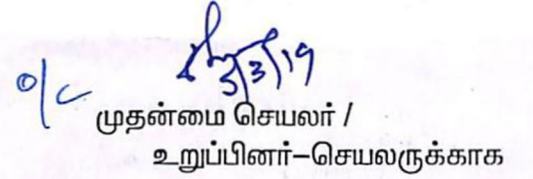 5/3/19
O/C
முதன்மை செயலர் /
உறுப்பினர்–செயலருக்காக